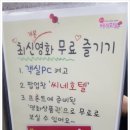 최신영화 무료 즐기기
1. 객실PC 켜고
2. 팝업창 '씨네호텔'
3. 프론트에 준비된
"영화상품권"으로 무료로
보실 수 있어요~